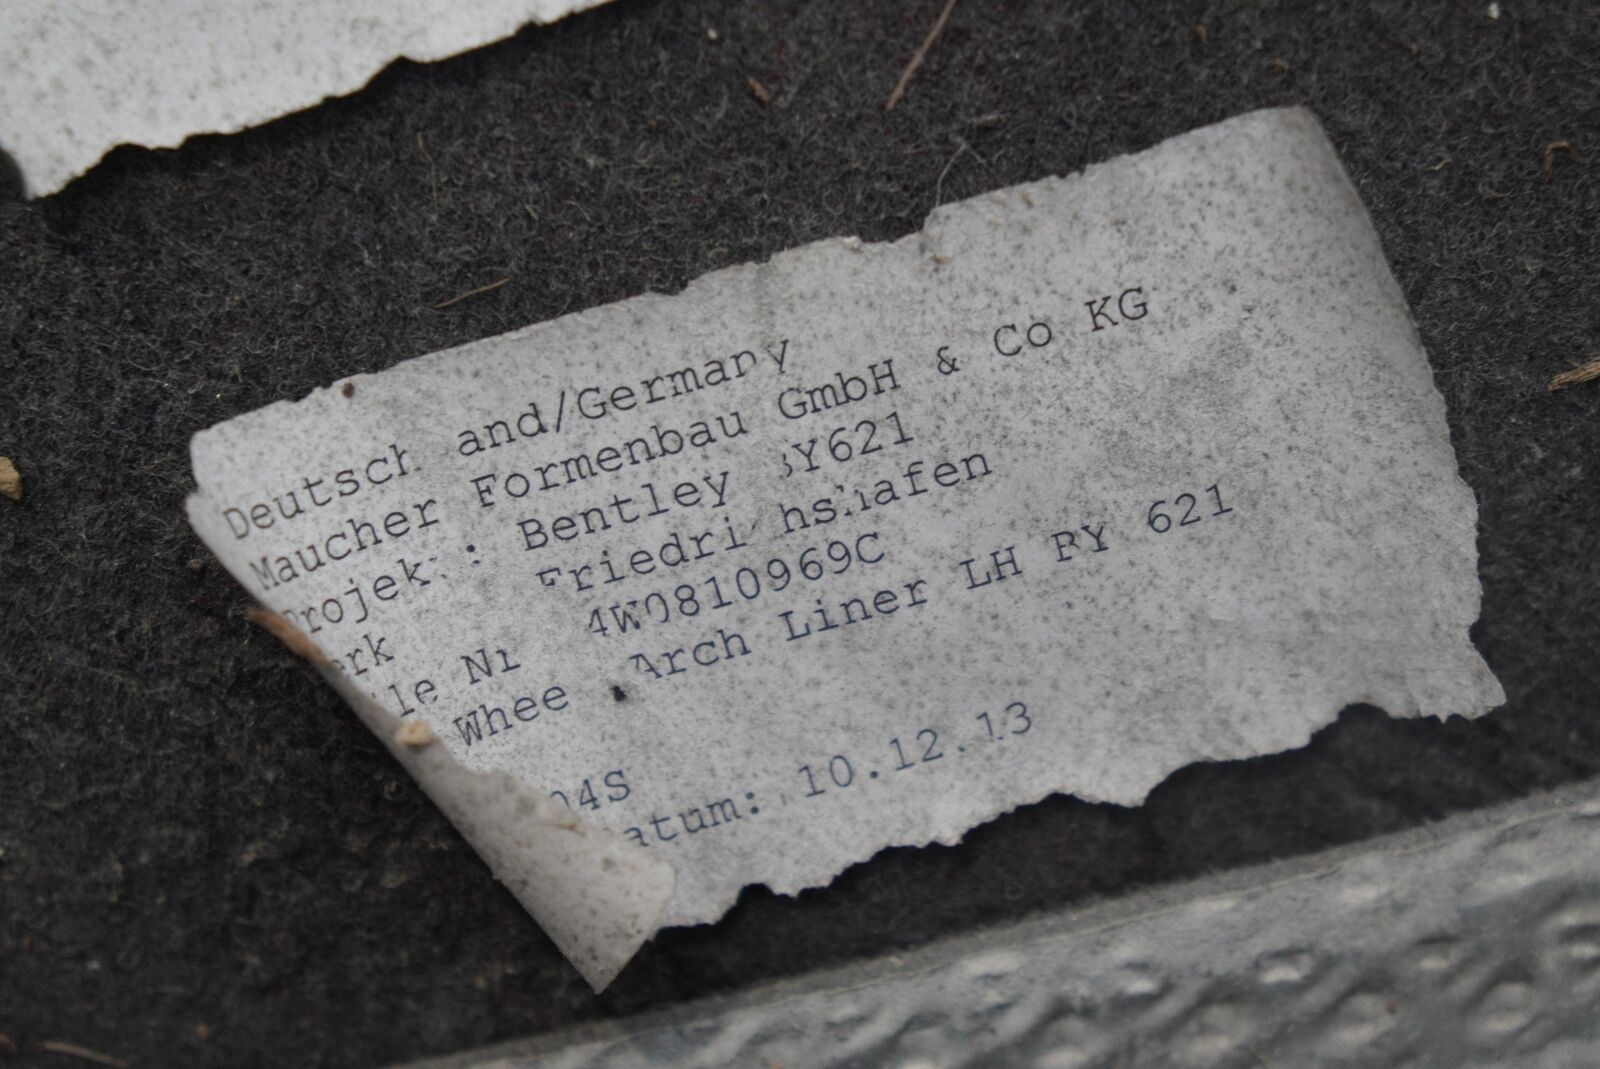 Deutsch and/Germany
Maucher Formenbau GmbH & Co KG
Projek : Bentley BY621
erk Friedri hshafen
ile Nr 4W0810969C
Whee Arch Liner LH BY 621
04S
atum: 10.12.13